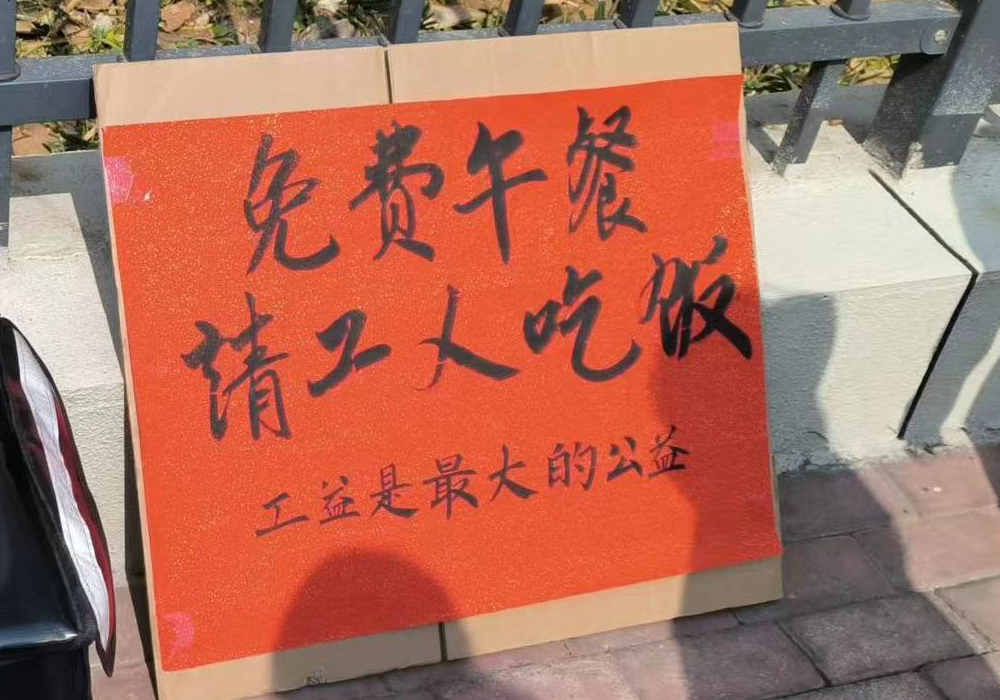 免費午餐
請工人吃饭
工益是最大的公益